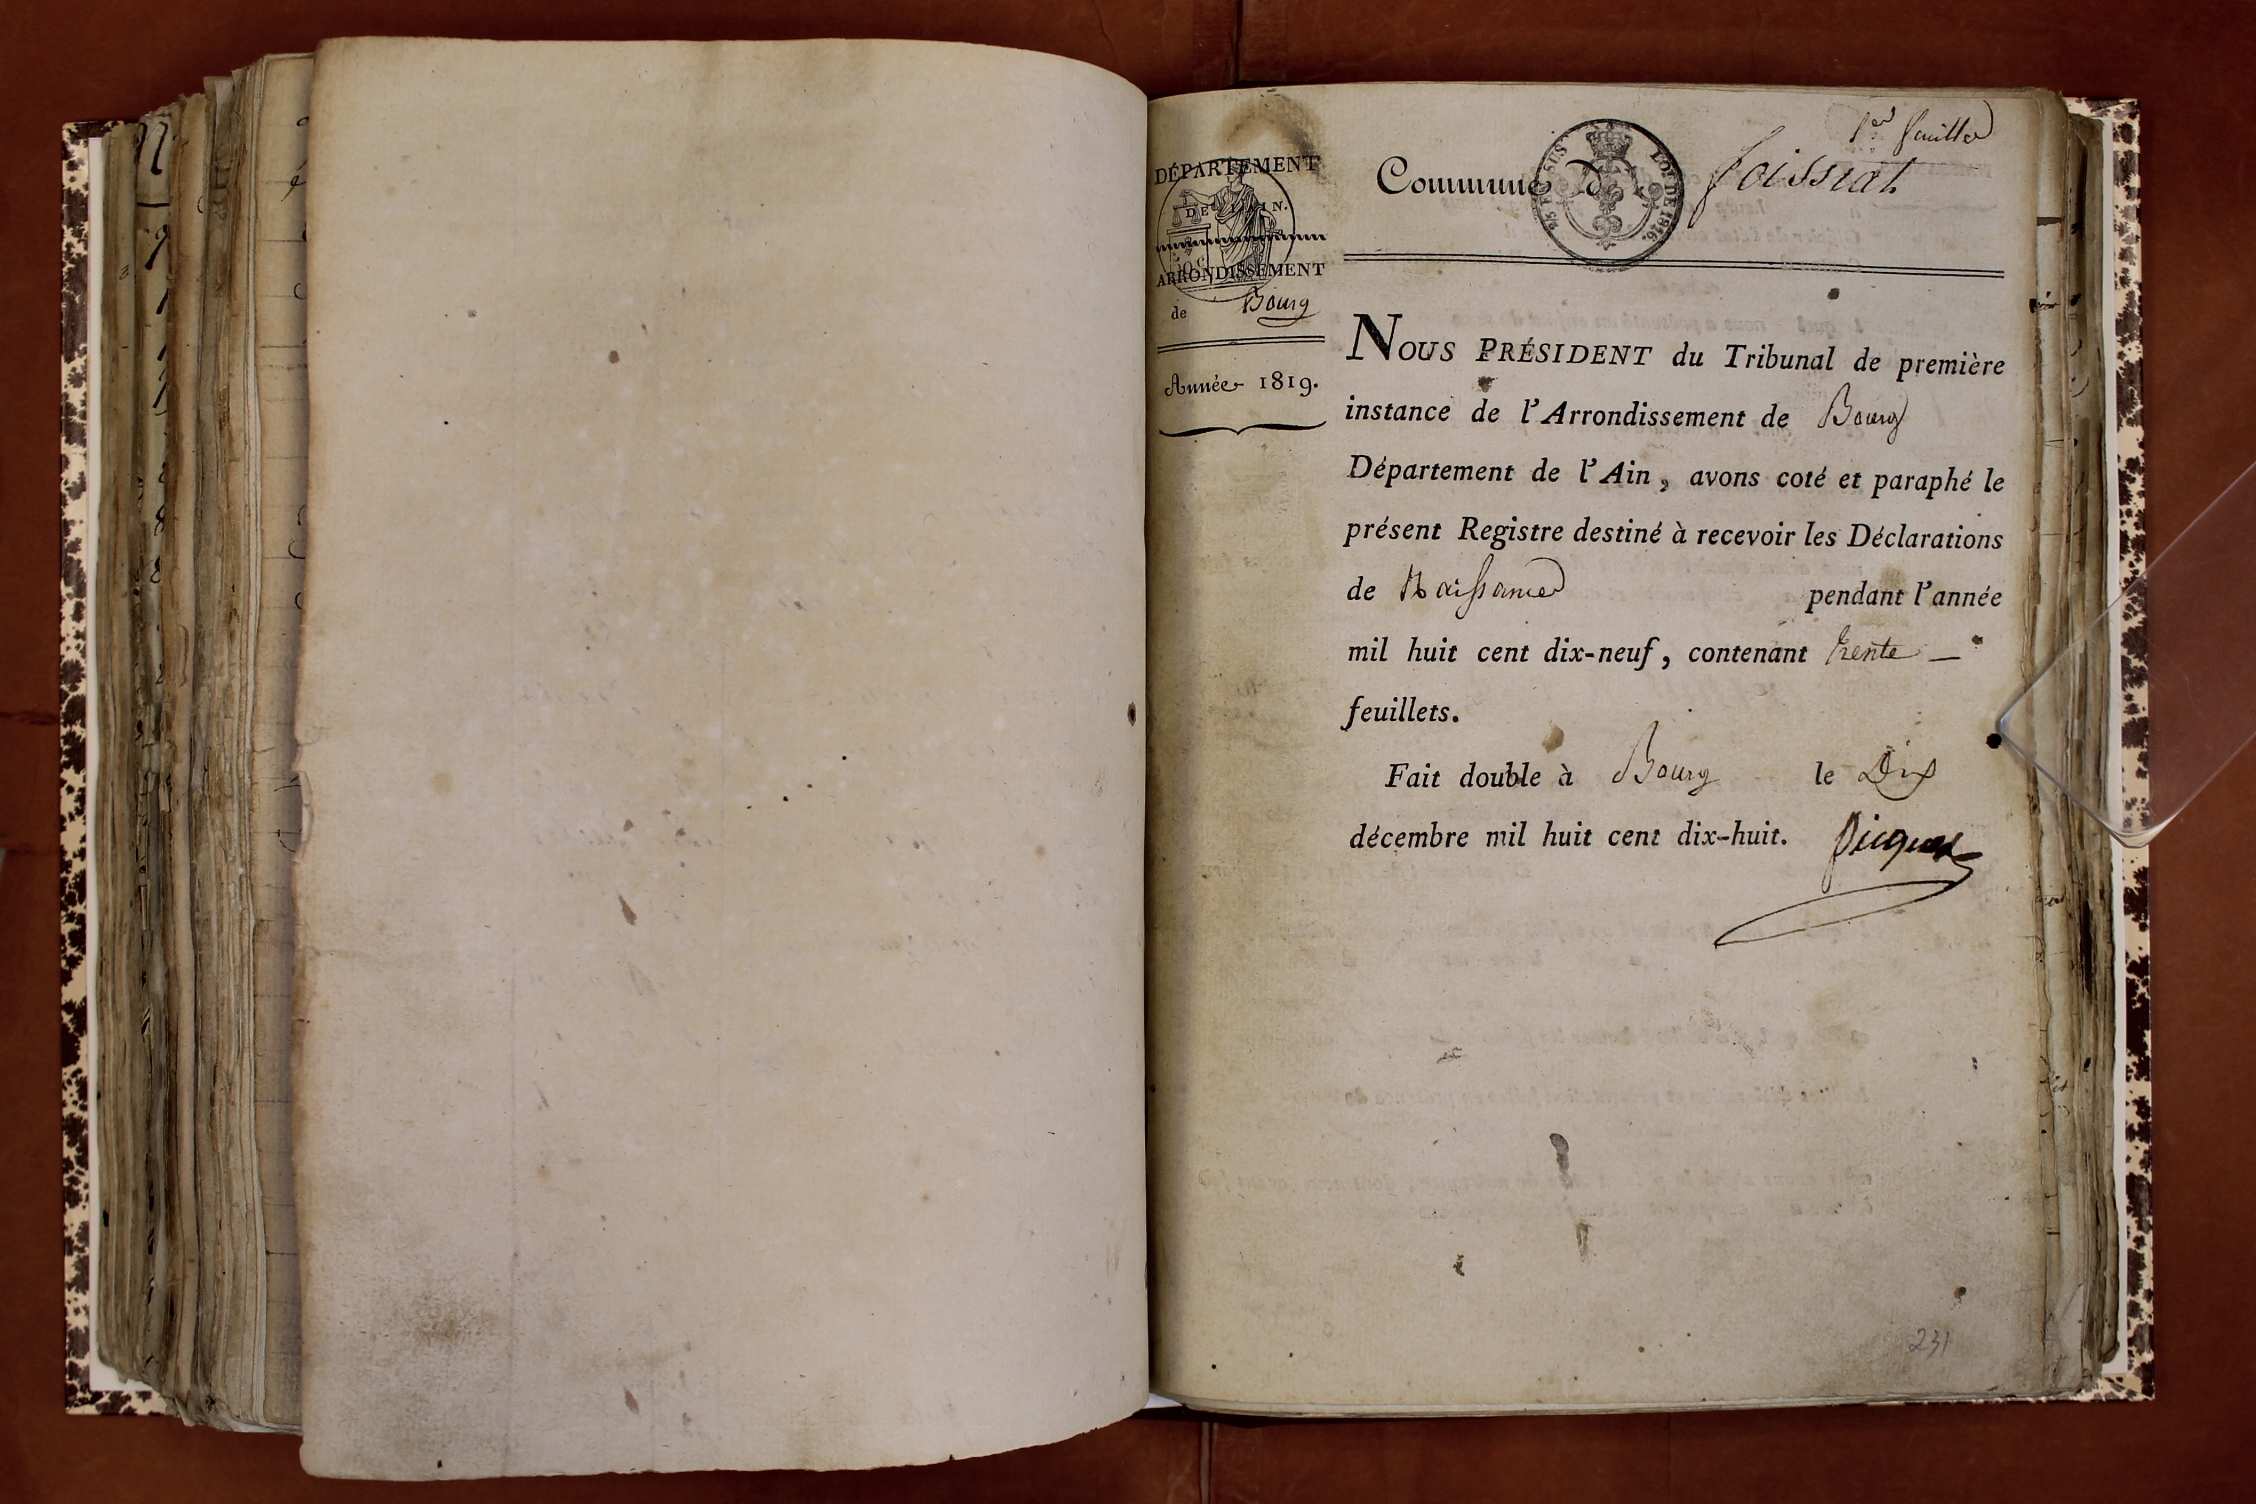 1er feuillet
DÉPARTEMENT
DE L'AIN.
ARRONDISSEMENT
de Bourg
Année 1819.
Commune de foissiat
EN SUS
LOI DE 1816.
NOUS PRÉSIDENT du Tribunal de première
instance de l'Arrondissement de Bourg
Département de l'Ain, avons coté et paraphé le
présent Registre destiné à recevoir les Déclarations
de Naissance pendant l'année
mil huit cent dix-neuf, contenant trente —
feuillets.
Fait double à Bourg le Dix
décembre mil huit cent dix-huit. Picquet
231